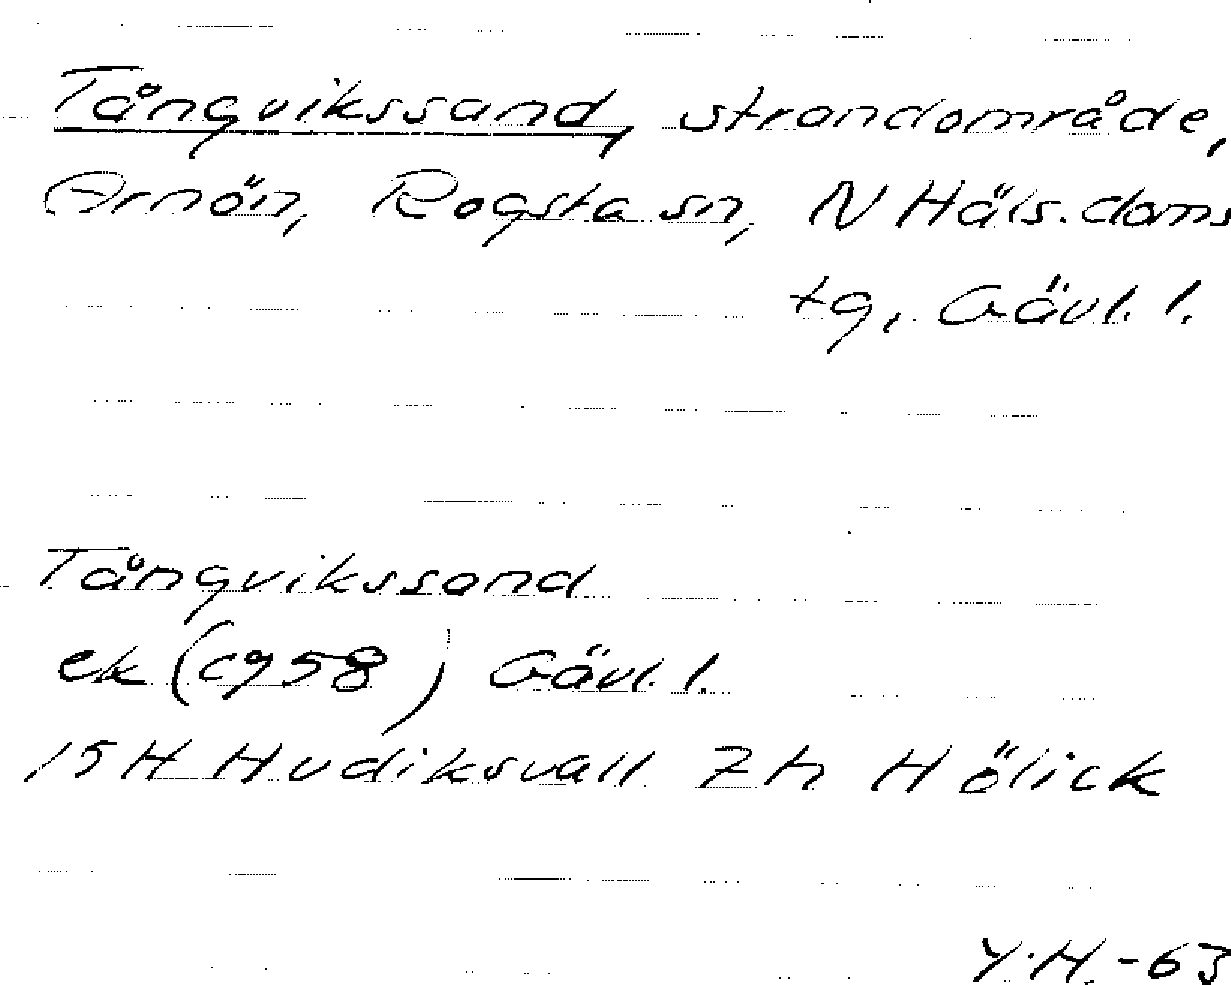 Tångvikssand, strandområde,
Arnön, Rogsta sn, N Häls. doms
tg, Gävl. l.
Tångvikssand
ek (c958) Gävl. l.
15H Hudiksvall 7h Hölick
Y.H. -63